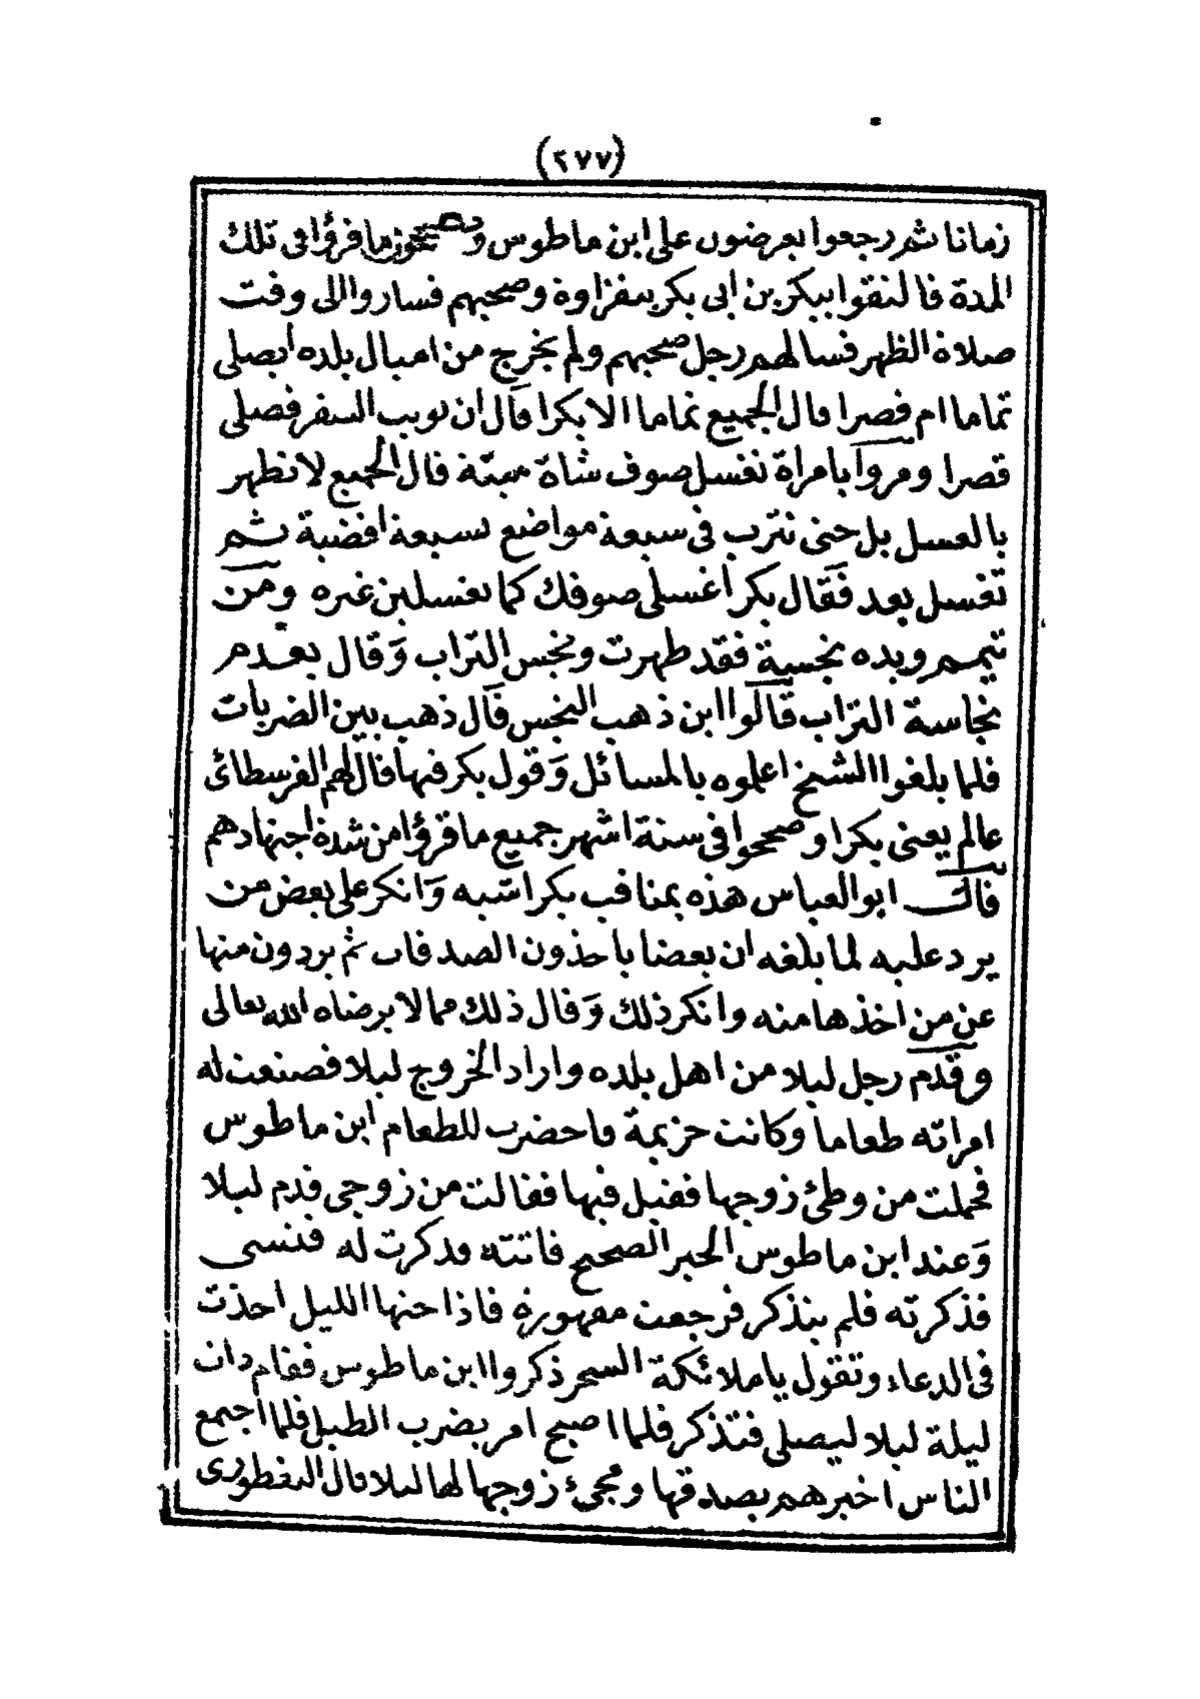 (٢٧٧)
زمانا ثم رجعوا يعرضون على ابن ماطوس ويصححون ما قرؤا في تلك
المدة فالتقوا ببكر بن ابى بكر بنفزاوة وصحبهم فساروا الى وقت
صلاة الظهر فسالهم رجل صحبهم ولم يخرج من اميال بلده ايصلى
تماما ام قصرا قال الجميع تماما الا بكرا قال ان نويت السفر فصلى
قصرا ومروا بامراة تغسل صوف شاة ميتة قال الجميع لا تطهر
بالغسل بل حتى تترب فى سبعة مواضع لسبعة اقضبة ثم
تغسل بعد فقال بكر اغسلى صوفك كما تغسلين غيره ومن
تيمم ويده نجسة فقد طهرت ونجس التراب وقال بعدم
نجاسة التراب قالوا اين ذهب النجس قال ذهب بين الضربات
فلما بلغوا الشيخ اعلموه بالمسائل وقول بكر فيها قال لهم الفرسطائى
عالم يعنى بكرا وصححوا فى ستة اشهر جميع ما قرؤا من شدة اجتهادهم
قال ابو العباس هذه بمناقب بكر اشبه وانكر على بعض من
يرد عليه لما بلغه ان بعضا ياخذون الصدقات ثم يردون منها
عن من اخذها منه وانكر ذلك وقال ذلك مما لا يرضاه الله تعالى
وقدم رجل ليلا من اهل بلده واراد الخروج ليلا فصنعت له
امراته طعاما وكانت حزيمة فاحضرت للطعام ابن ماطوس
فحملت من وطئ زوجها فقيل فيها فقالت من زوجى قدم ليلا
وعند ابن ماطوس الخبر الصحيح فاتته وذكرت له فنسى
فذكرته فلم يتذكر فرجعت مقهورة فاذا جنها الليل اخذت
فى الدعاء وتقول يا ملائكة السحر ذكروا ابن ماطوس فقام ذات
ليلة ليلا ليصلى فتذكر فلما اصبح امر بضرب الطبل فلما اجتمع
الناس اخبرهم بصدقها ومجئ زوجها لها ليلا قال البغطورى